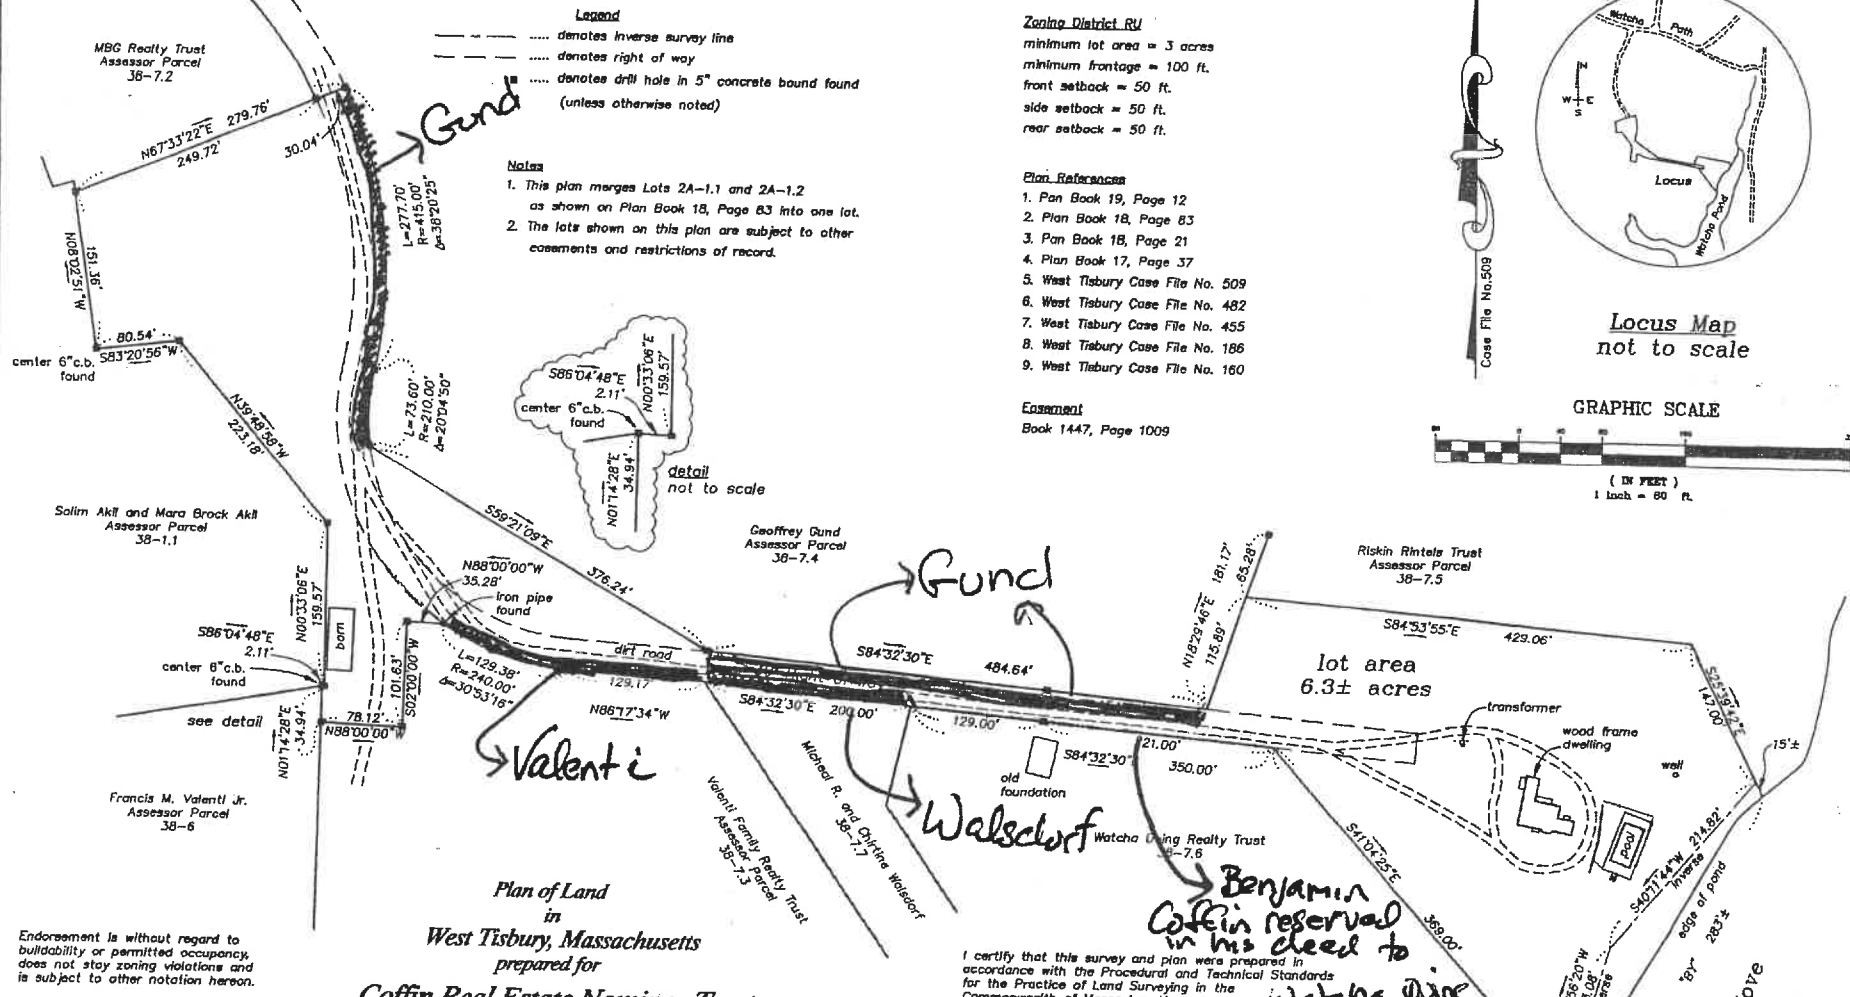 Legend
..... denotes inverse survey line
..... denotes right of way
..... denotes drill hole in 5" concrete bound found
(unless otherwise noted)
Notes
1. This plan merges Lots 2A-1.1 and 2A-1.2
as shown on Plan Book 18, Page 83 into one lot.
2. The lots shown on this plan are subject to other
easements and restrictions of record.
Zoning District RU
minimum lot area = 3 acres
minimum frontage = 100 ft.
front setback = 50 ft.
side setback = 50 ft.
rear setback = 50 ft.
Plan References
1. Pan Book 19, Page 12
2. Plan Book 18, Page 83
3. Pan Book 18, Page 21
4. Plan Book 17, Page 37
5. West Tisbury Case File No. 509
6. West Tisbury Case File No. 482
7. West Tisbury Case File No. 455
8. West Tisbury Case File No. 186
9. West Tisbury Case File No. 160
Easement
Book 1447, Page 1009
Case File No.509
Watcha Path
N
W E
S
Locus
Watcha Pond
Locus Map
not to scale
GRAPHIC SCALE
( IN FEET )
1 inch = 80 ft.
MBG Realty Trust
Assessor Parcel
38-7.2
N67°33'22"E 279.76'
249.72'
30.04'
Gund
L=277.70'
R=415.00'
Δ=38°20'25"
N08°02'51"W
151.36'
80.54'
S83°20'56"W
center 6"c.b.
found
N39°48'58"W
223.18'
L=73.60'
R=210.00'
Δ=20°04'50"
S86°04'48"E
2.11'
center 6"c.b.
found
N00°33'06"E
159.57'
N01°14'28"E
34.94'
detail
not to scale
Salim Akil and Mara Brock Akil
Assessor Parcel
38-1.1
S59°21'09"E
376.24'
Geoffrey Gund
Assessor Parcel
38-7.4
N88°00'00"W
35.28'
iron pipe
found
N00°33'06"E
159.57'
barn
S86°04'48"E
2.11'
center 6"c.b.
found
see detail
N01°14'28"E
34.94'
78.12'
N88°00'00"W
101.63'
S02°00'00"W
L=129.38'
R=240.00'
Δ=30°53'16"
dirt road
129.17'
N86°17'34"W
Valenti
Gund
S84°32'30"E
484.64'
S84°32'30"E 200.00'
129.00'
S84°32'30"
21.00'
350.00'
old
foundation
Walsdorf
N18°29'46"E 181.17'
115.89'
65.28'
Riskin Rintels Trust
Assessor Parcel
38-7.5
S84°53'55"E
429.06'
lot area
6.3± acres
S25°39'42"E
147.00'
15'±
transformer
wood frame
dwelling
well
pool
S40°11'44"W 214.82'
inverse
edge of pond
283'±
"BY"
S41°04'25"E
369.00'
Francis M. Valenti Jr.
Assessor Parcel
38-6
Valenti Family Realty Trust
Assessor Parcel
38-7.3
Micheal R. and Chirtine Walsdorf
38-7.7
Watcha Realty Trust
Benjamin
Coffin reserved
in his deed to
Plan of Land
in
West Tisbury, Massachusetts
prepared for
Coffin Real Estate Nominee
Endorsement is without regard to
buildability or permitted occupancy,
does not stay zoning violations and
is subject to other notation hereon.
I certify that this survey and plan were prepared in
accordance with the Procedural and Technical Standards
for the Practice of Land Surveying in the